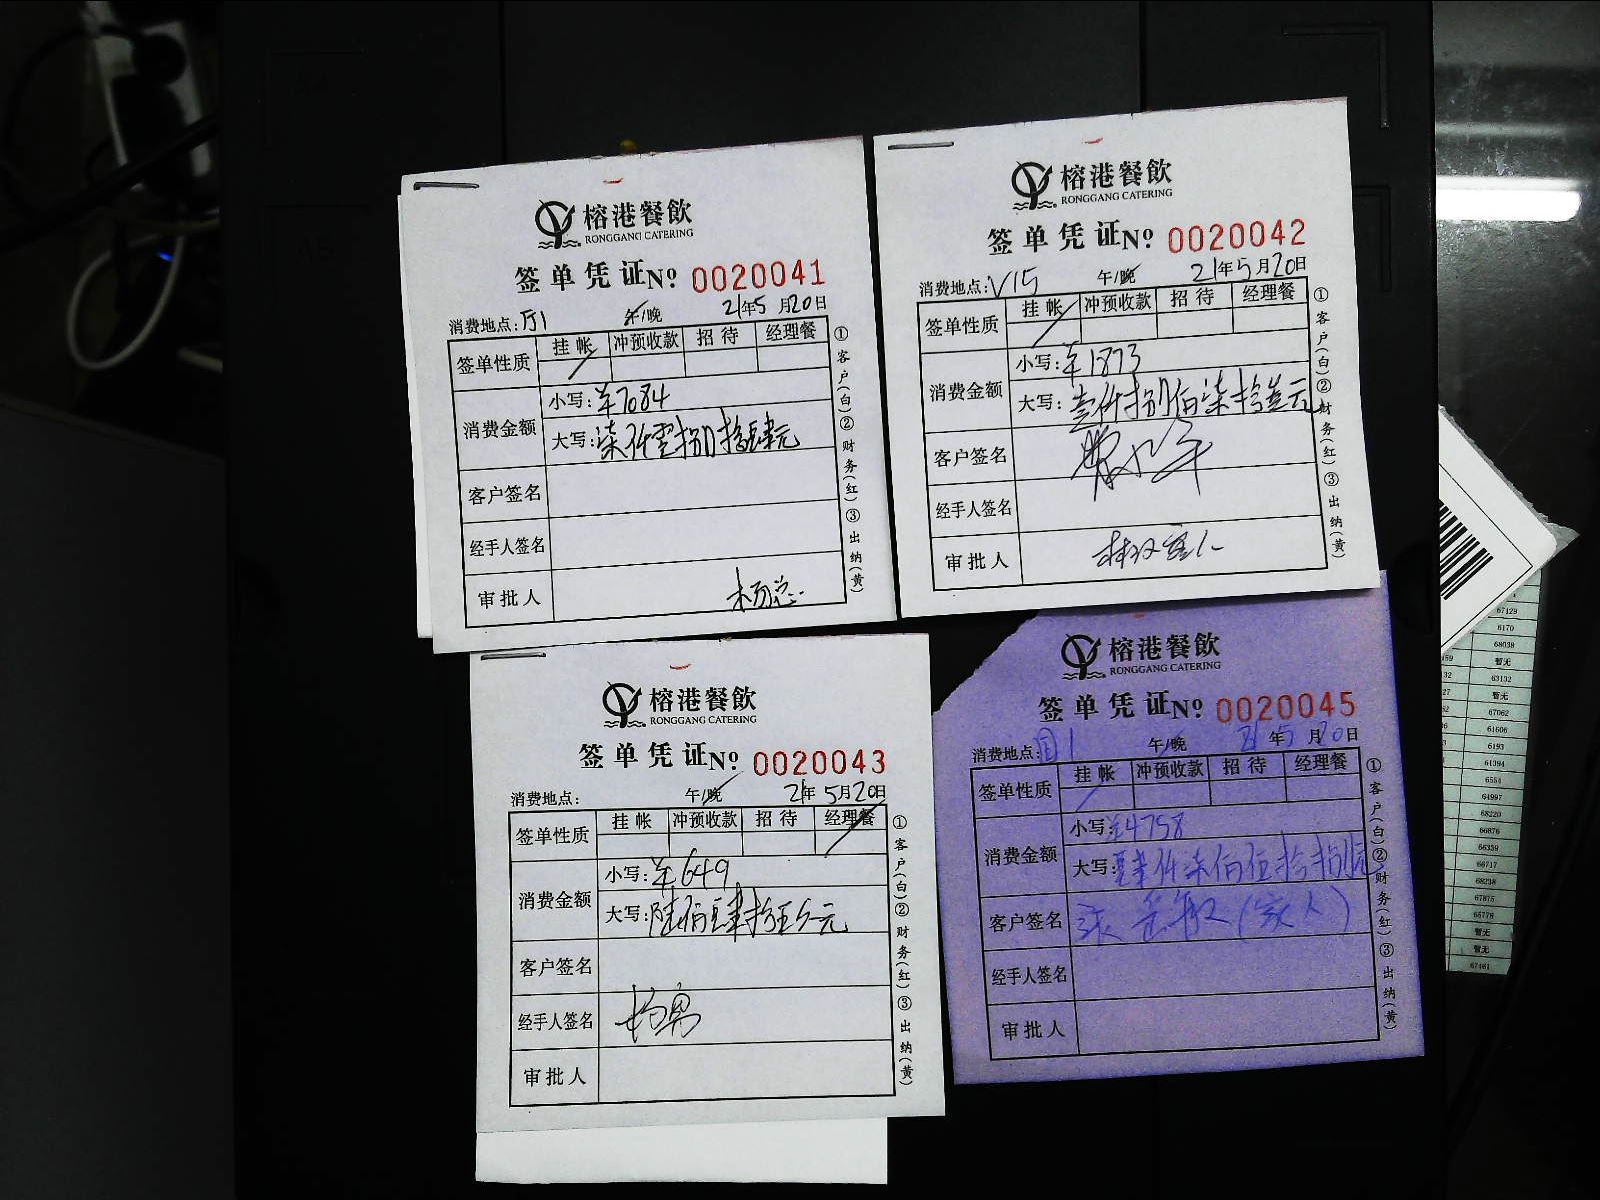 榕港餐飲
RONGGANG CATERING
签单凭证№ 0020041
消费地点: 午/晚 21年5月20日
签单性质 挂帐 冲预收款 招待 经理餐
消费金额 小写:¥7084
大写:柒仟零捌拾肆元
客户签名
经手人签名
审批人 杨总
①客户(白)②财务(红)③出纳(黄)
榕港餐飲
RONGGANG CATERING
签单凭证№ 0020042
消费地点:V15 午/晚 21年5月20日
签单性质 挂帐 冲预收款 招待 经理餐
消费金额 小写:¥1873
大写:壹仟捌佰柒拾叁元
客户签名
经手人签名
审批人
①客户(白)②财务(红)③出纳(黄)
榕港餐飲
RONGGANG CATERING
签单凭证№ 0020043
消费地点: 午/晚 21年5月20日
签单性质 挂帐 冲预收款 招待 经理餐
消费金额 小写:¥649
大写:陆佰肆拾玖元
客户签名
经手人签名
审批人
①客户(白)②财务(红)③出纳(黄)
榕港餐飲
RONGGANG CATERING
签单凭证№ 0020045
消费地点: 午/晚 21年5月20日
签单性质 挂帐 冲预收款 招待 经理餐
消费金额 小写:¥4758
大写:肆仟柒佰伍拾捌元
客户签名 (家人)
经手人签名
审批人
①客户(白)②财务(红)③出纳(黄)
67129
6170
68038
暂无
63132
暂无
67062
61606
6193
61394
6554
64997
68220
66876
66339
66717
68238
67875
65778
暂无
暂无
67461